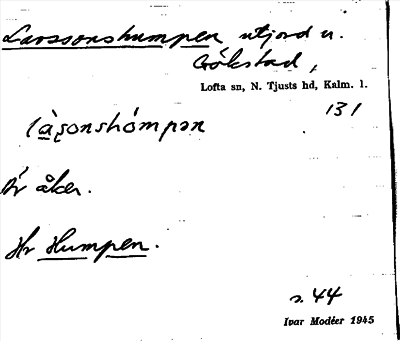 Larssonshumpen utjord u.
Gökstad,
Lofta sn, N. Tjusts hd, Kalm. l.
131
làʂonshómpən
Är åker.
Hr Humpen.
s. 44
Ivar Modéer 1945